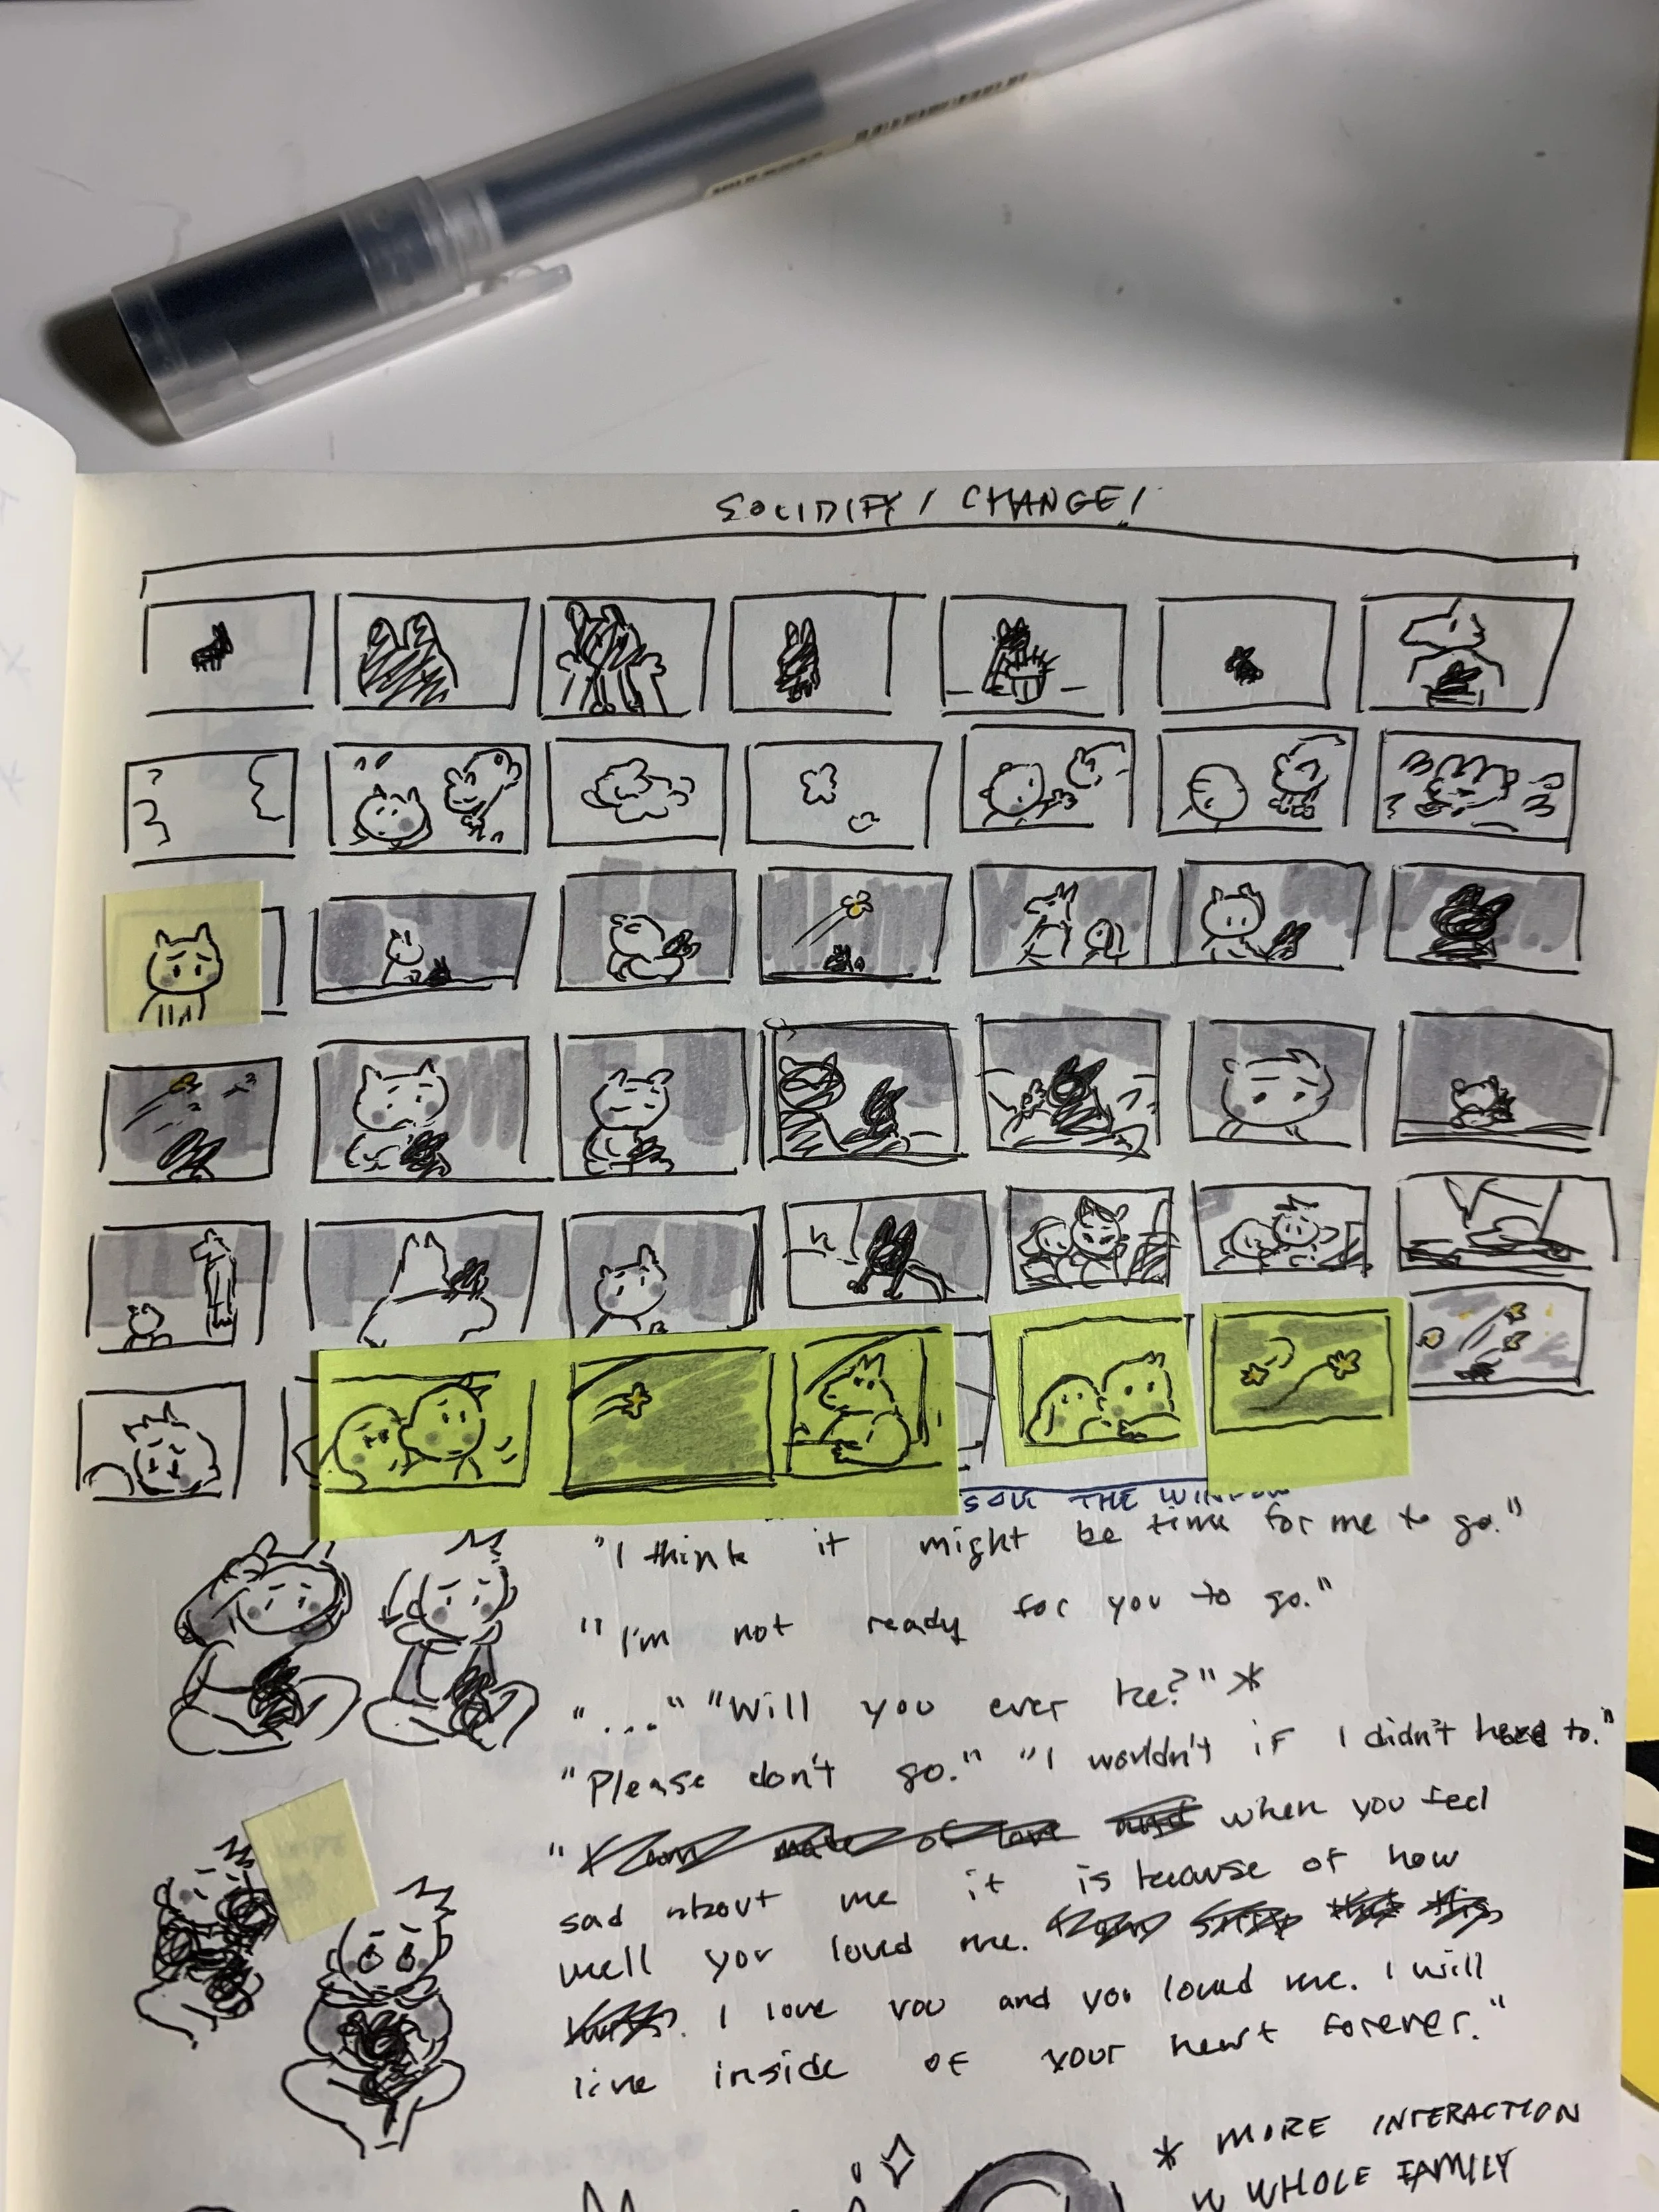 SOLIDIFY / CHANGE!
THE WINDOW
"I think it might be time for me to go."
"I'm not ready for you to go."
"..." "Will you ever be?" *
"Please don't go." "I wouldn't if I didn't have to."
" when you feel
sad about me it is because of how
well you loved me.
. I love you and you loved me. I will
live inside of your heart forever."
* MORE INTERACTION
W WHOLE FAMILY